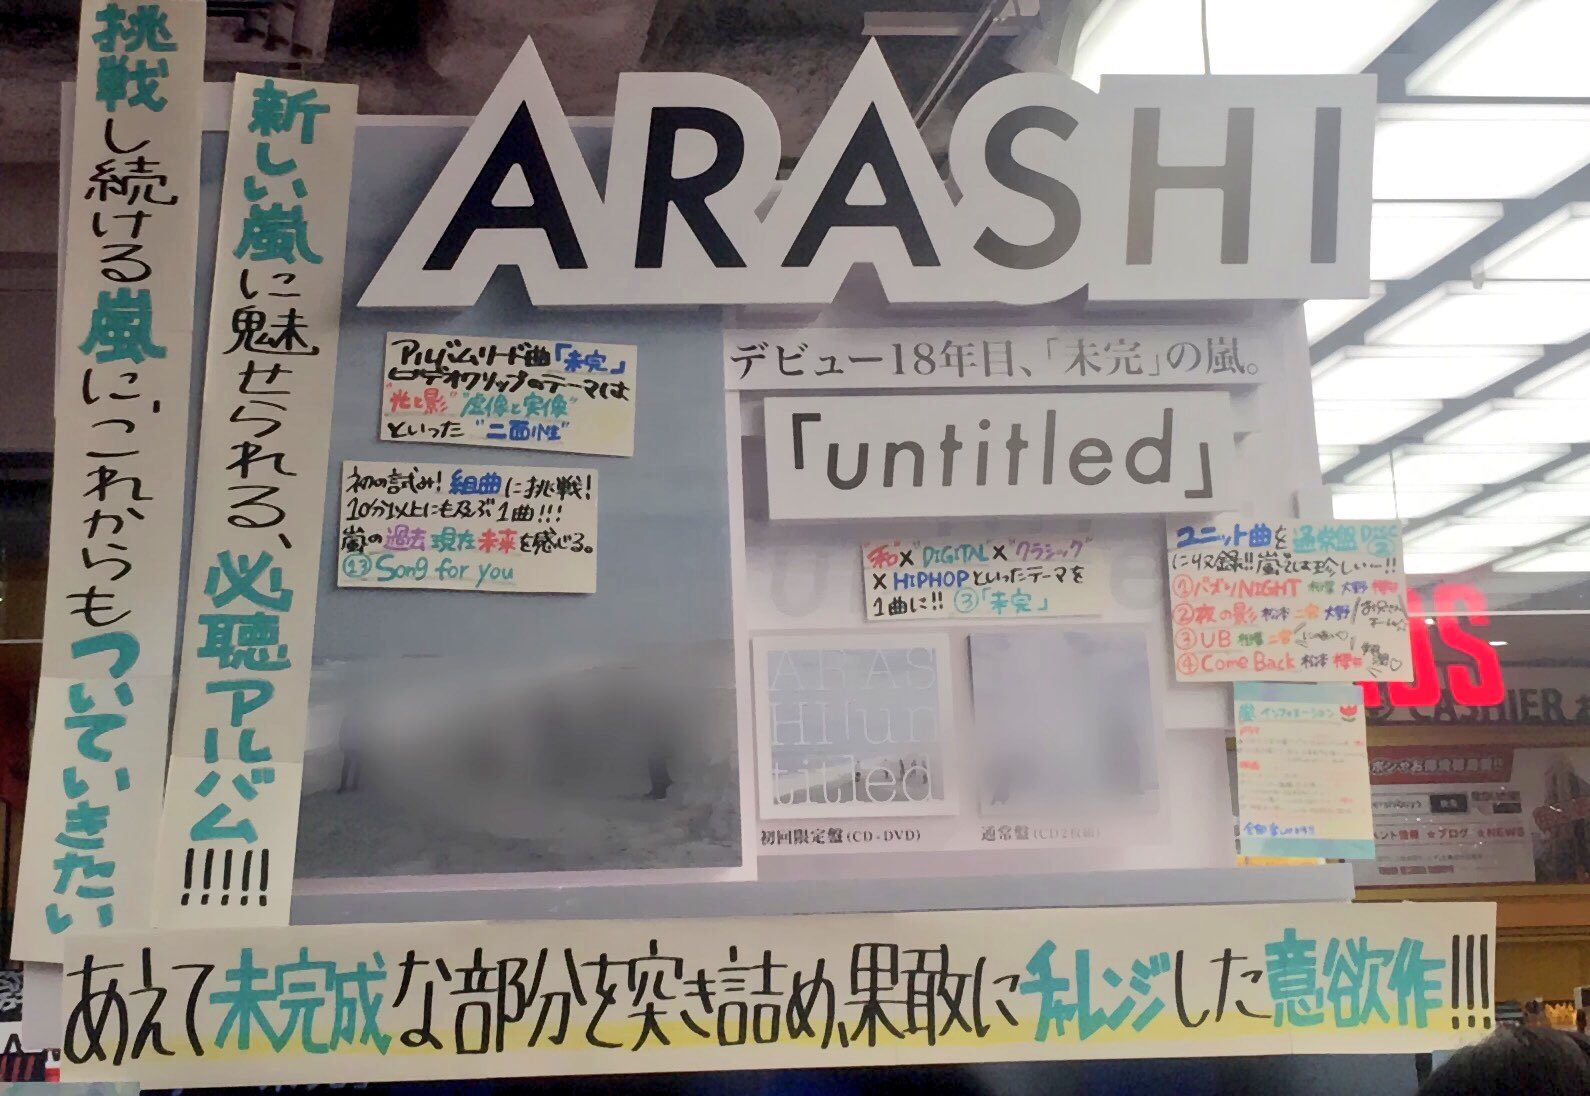 挑戦し続ける嵐に、これからもついていきたい
新しい嵐に魅せられる、必聴アルバム!!!!!
ARASHI
アルバムリード曲「未完」
ビデオクリップのテーマは
"光と影" "虚像と実像"
といった "二面性"
初の試み! 組曲に挑戦!
10分以上にも及ぶ1曲!!!
嵐の過去 現在 未来を感じる。
⑬ Song for you
デビュー18年目、「未完」の嵐。
「untitled」
"和"×"DIGITAL"×"クラシック"
×HIPHOPといったテーマを
1曲に!! ③「未完」
ユニット曲を通常盤DISC2
に収録!! 嵐では珍しい…!!
①バズりNIGHT 相葉 大野 櫻井
②夜の影 松本 二宮 大野
③UB 相葉 二宮
④Come Back 松本 櫻井
ARAS
HI「un
titled
初回限定盤(CD+DVD)
通常盤(CD2枚組)
嵐 インフォメーション
DS
CASHIER
ベント情報 ★ブログ ★NEWS
あえて未完成な部分を突き詰め、果敢にチャレンジした意欲作!!!